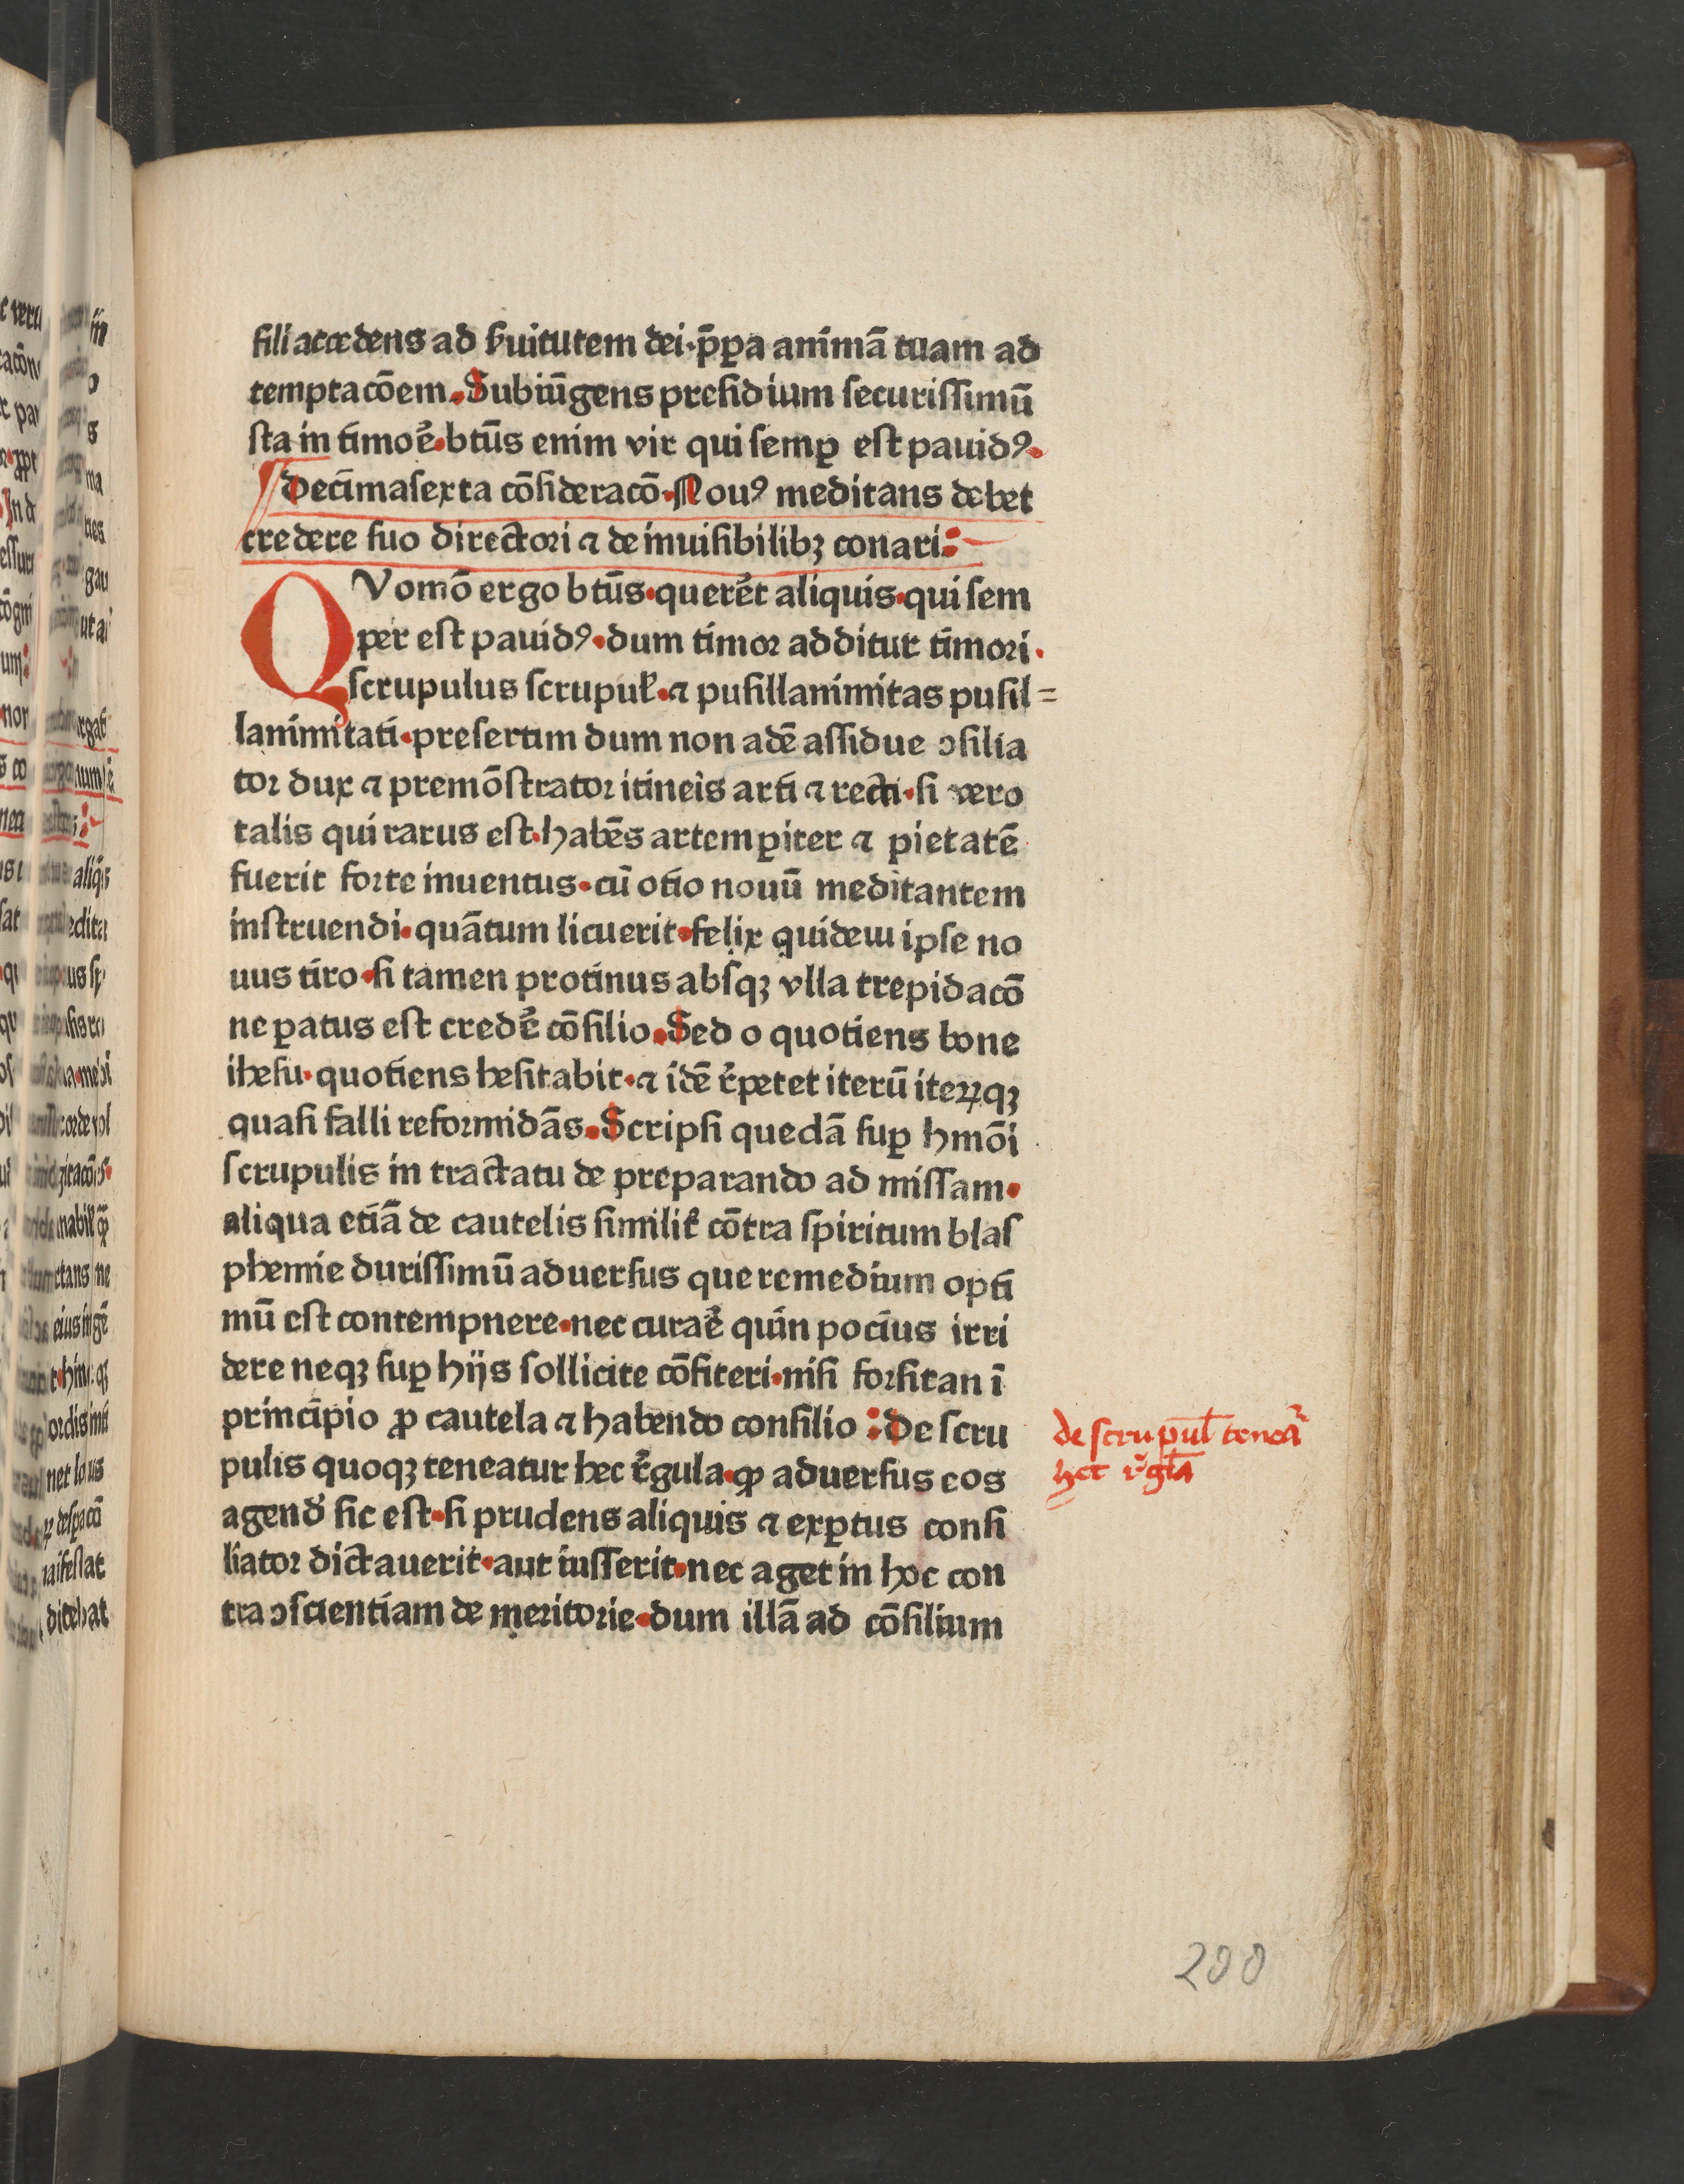 fili accedens ad ẜuitutem dei·p̄ꝑa animā tuam ad
temptacōem·Subiūgens presidium securissimū
sta in timoē·btūs enim vir qui semꝑ est pauidꝰ·
Decimasexta cōsideracō·Nouꝰ meditans debet
credere suo directori ⁊ de inuisibilibꝫ conari:
QVomō ergo btūs·querēt aliquis·qui sem
per est pauidꝰ·dum timor additur timori·
scrupulus scrupul̉·⁊ pusillanimitas pusil=
lanimitati·presertim dum non adē assidue ɔsilia
tor dux ⁊ premōstrator itineīs arti ⁊ recti·si vero
talis qui rarus est·habēs artem ꝑiter ⁊ pietatē
fuerit forte inuentus·cū otio nouū meditantem
instruendi·quātum licuerit·felix quidem ipse no
uus tiro·si tamen protinus absqꝫ vlla trepidacō
ne ꝑatus est credē cōsilio·Sed o quotiens bone
ihesu·quotiens hesitabit·⁊ idē r̄petet iterū iteꝝqꝫ
quasi falli reformidās·Scripsi quedā suꝑ hmōi
scrupulis in tractatu de preparando ad missam·
aliqua etiā de cautelis similit̉ cōtra spiritum blas
phemie durissimū aduersus que remedium opti
mū est contempnere·nec curaē quin pocius irri
dere neqꝫ suꝑ hijs sollicite cōfiteri·nisi forsitan ī
principio ꝓ cautela ⁊ habendo consilio:De scru
pulis quoqꝫ teneatur hec r̄gula·ꝙ aduersus eos
agend̉ sic est·si prudens aliquis ⁊ exꝑtus consi
liator dictauerit·aut iusserit·nec aget in hoc con
tra ɔscientiam de meritorie·dum illā ad cōsilium
de scrupul̄ teneā
hec r̄gl̄a
200